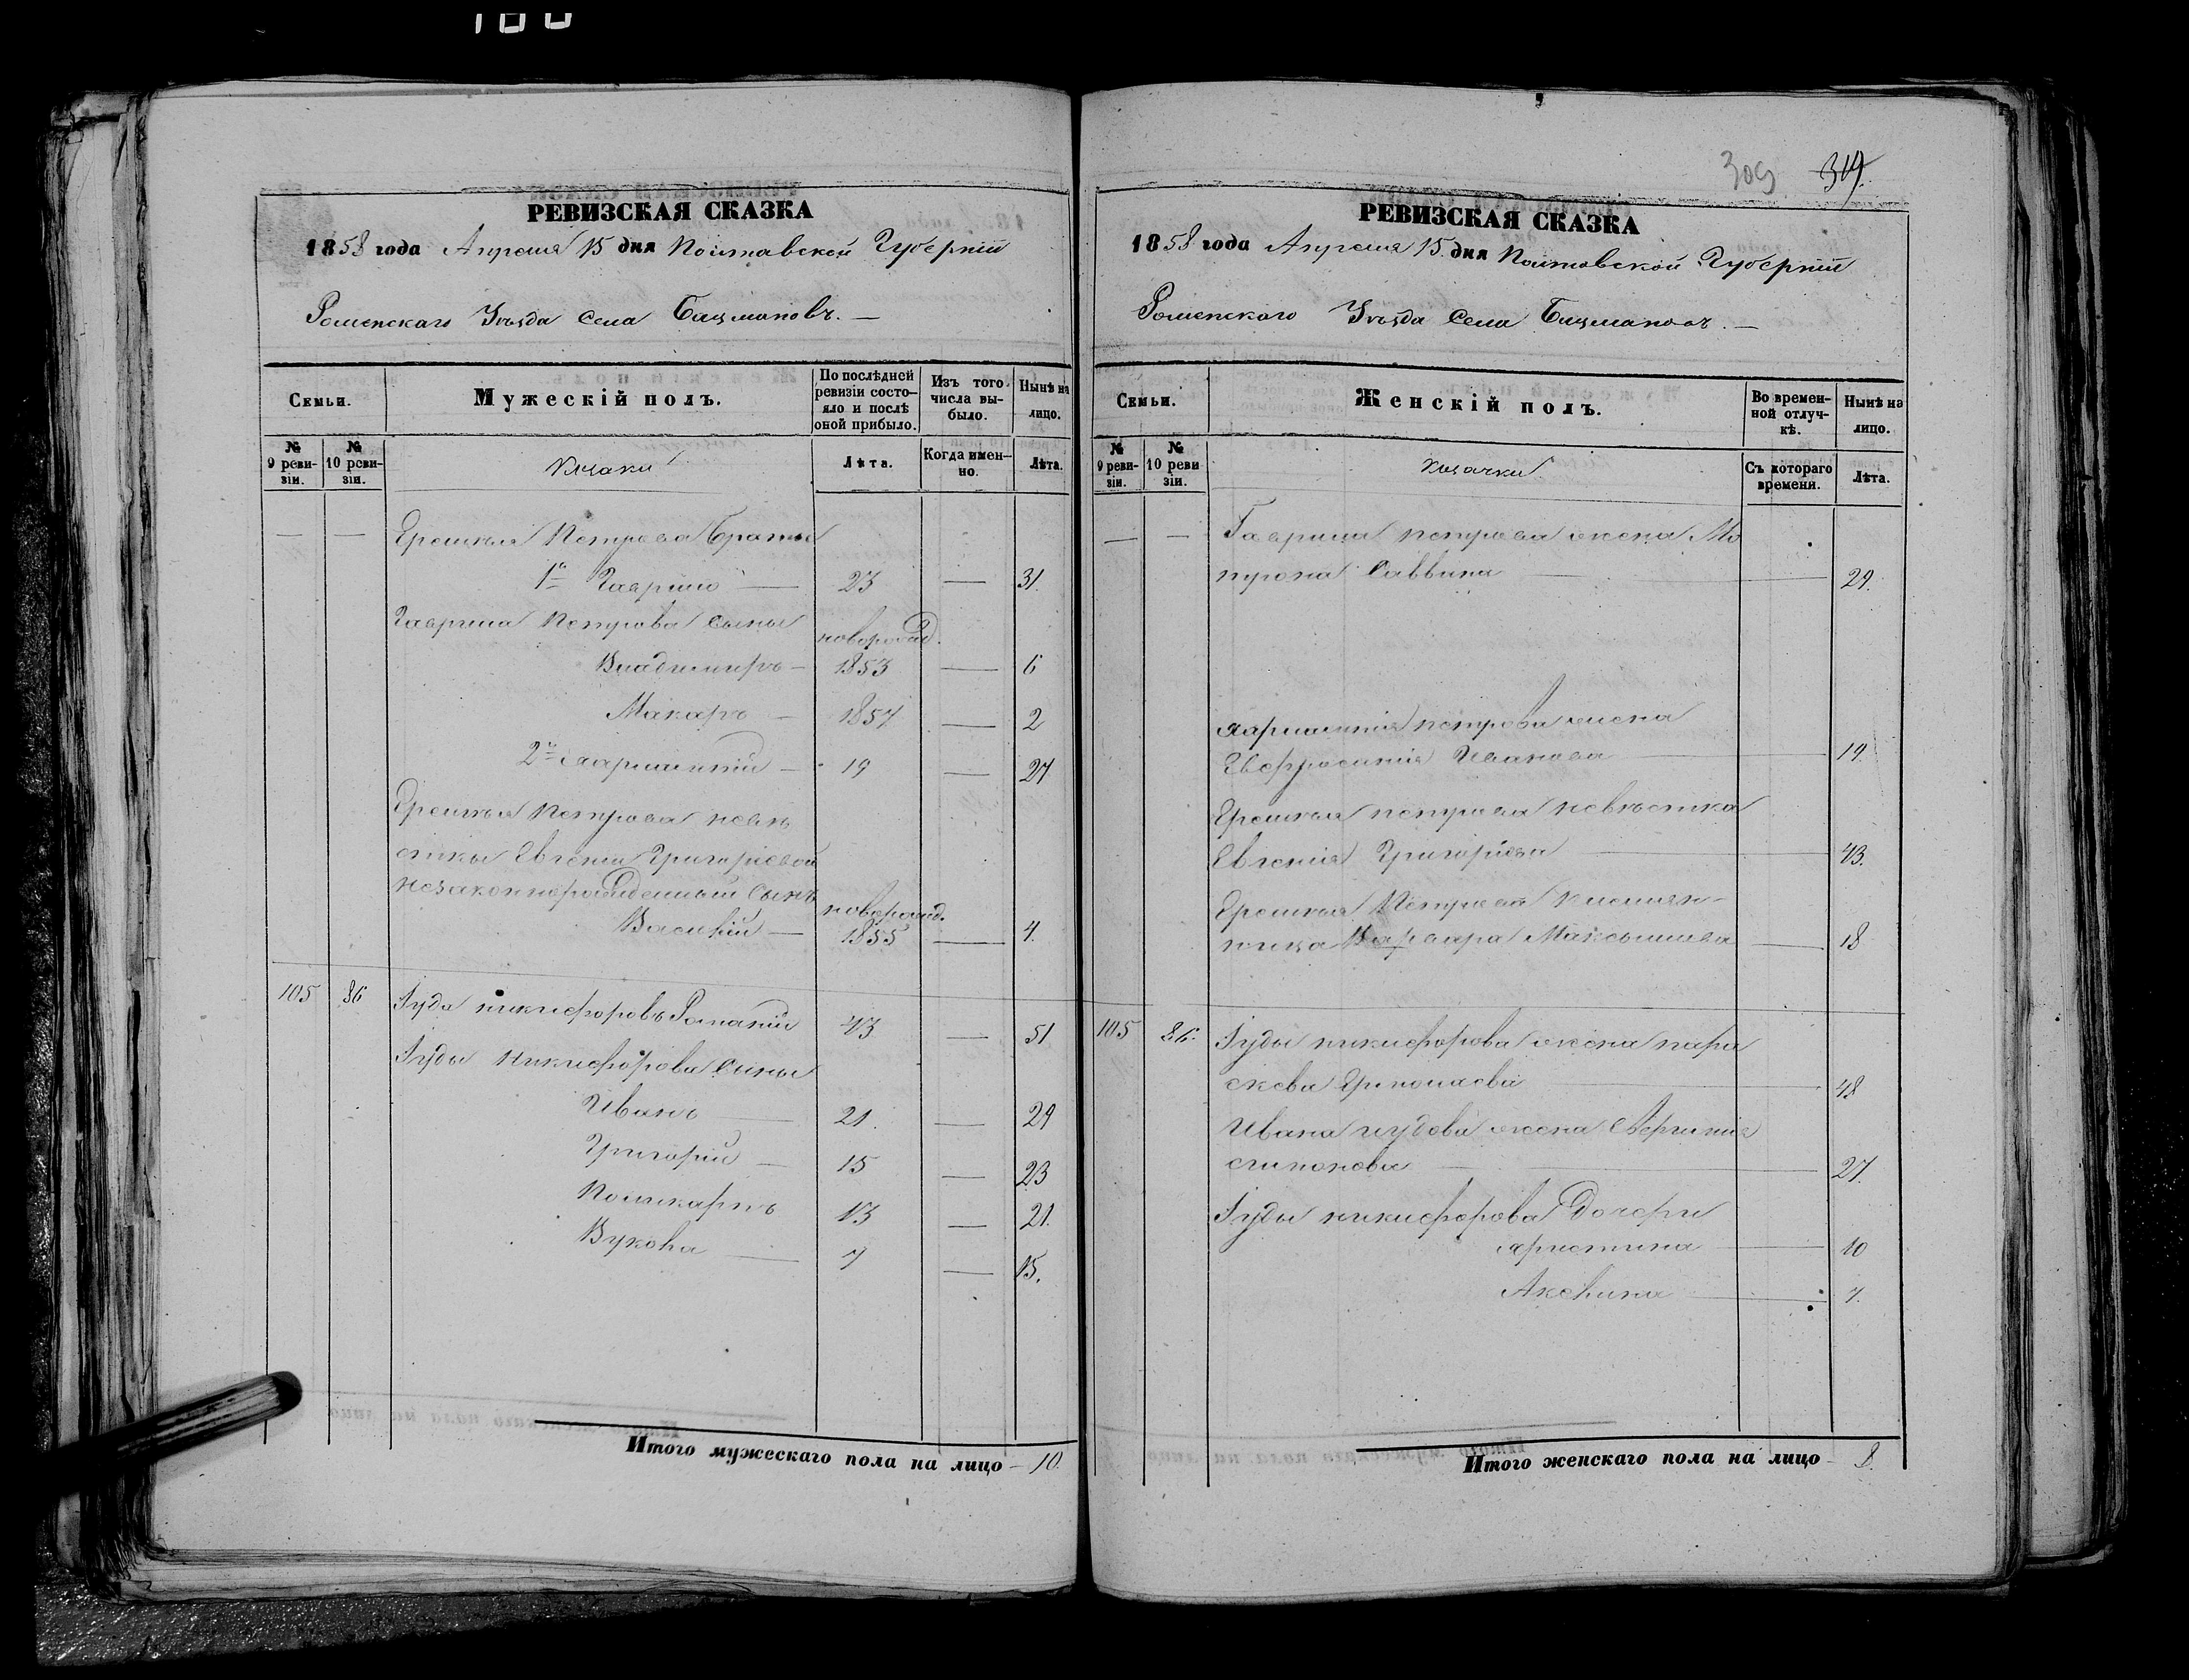 309 319.
РЕВИЗСКАЯ СКАЗКА
1858 года Апреля 15 дня Полтавской Губерніи
Роменскаго Уѣзда Села Бацмановъ. —
Семьи.
Мужескій полъ.
По послѣдней ревизіи состояло и послѣ оной прибыло.
Изъ того числа выбыло.
Нынѣ на лицо.
№ 9 ревизіи.
№ 10 ревизіи.
Козаки
Лѣта.
Когда именно.
Лѣта.
— — Еремѣя Петрова братья
1й Гаврило — 23 — 31.
Гаврила Петрова сыны
новорожд.
Владимиръ — 1853 — 6
Макаръ — 1857 — 2
2й — 19 — 27
Еремѣя Петрова невѣ
стки Евгении Григорiевой
незаконнорожденный сынъ
новорожд.
Василій — 1855 — 4.
105 86 Іуда никифоровъ Романій 43 — 51
Іуды никифорова сыны
Иванъ — 21. — 29
Григорій — 15 — 23
Поликарпъ 13 — 21.
Вукола — 7 — 15.
Итого мужескаго пола на лицо — 10.
РЕВИЗСКАЯ СКАЗКА
1858 года Апреля 15 дня Полтавской Губерніи
Роменскаго Уѣзда Села Бацмановъ. —
Семьи.
Женскій полъ.
Во временной отлучкѣ.
Нынѣ на лицо.
№ 9 ревизіи.
№ 10 ревизіи.
Козачки
Съ котораго времени.
Лѣта.
— — Гаврила петрова жена Ма
трона Саввина — 29.
петрова жена
Евфросинія Иванова — 19.
Еремѣя петрова невѣстка
Евгенія Григорiева — 43.
Еремѣя Петрова племян-
ница Варвара Максимова — 18
105 86. Іуды никифорова жена пара
скева Ермолаева — 48
Ивана иудова жена
— 27.
Іуды никифорова дочери
Христина — 10
Акелина — 7.
Итого женскаго пола на лицо — 8.